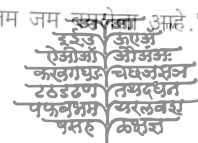 म जम जमलेला आहे."
इईउ ऊएॲ
ऐओऔ ऑअंअः
कखगघङ चछजझञ
टठडढण तथदधन
पफबभम यरलवश
षसह ळक्षज्ञ